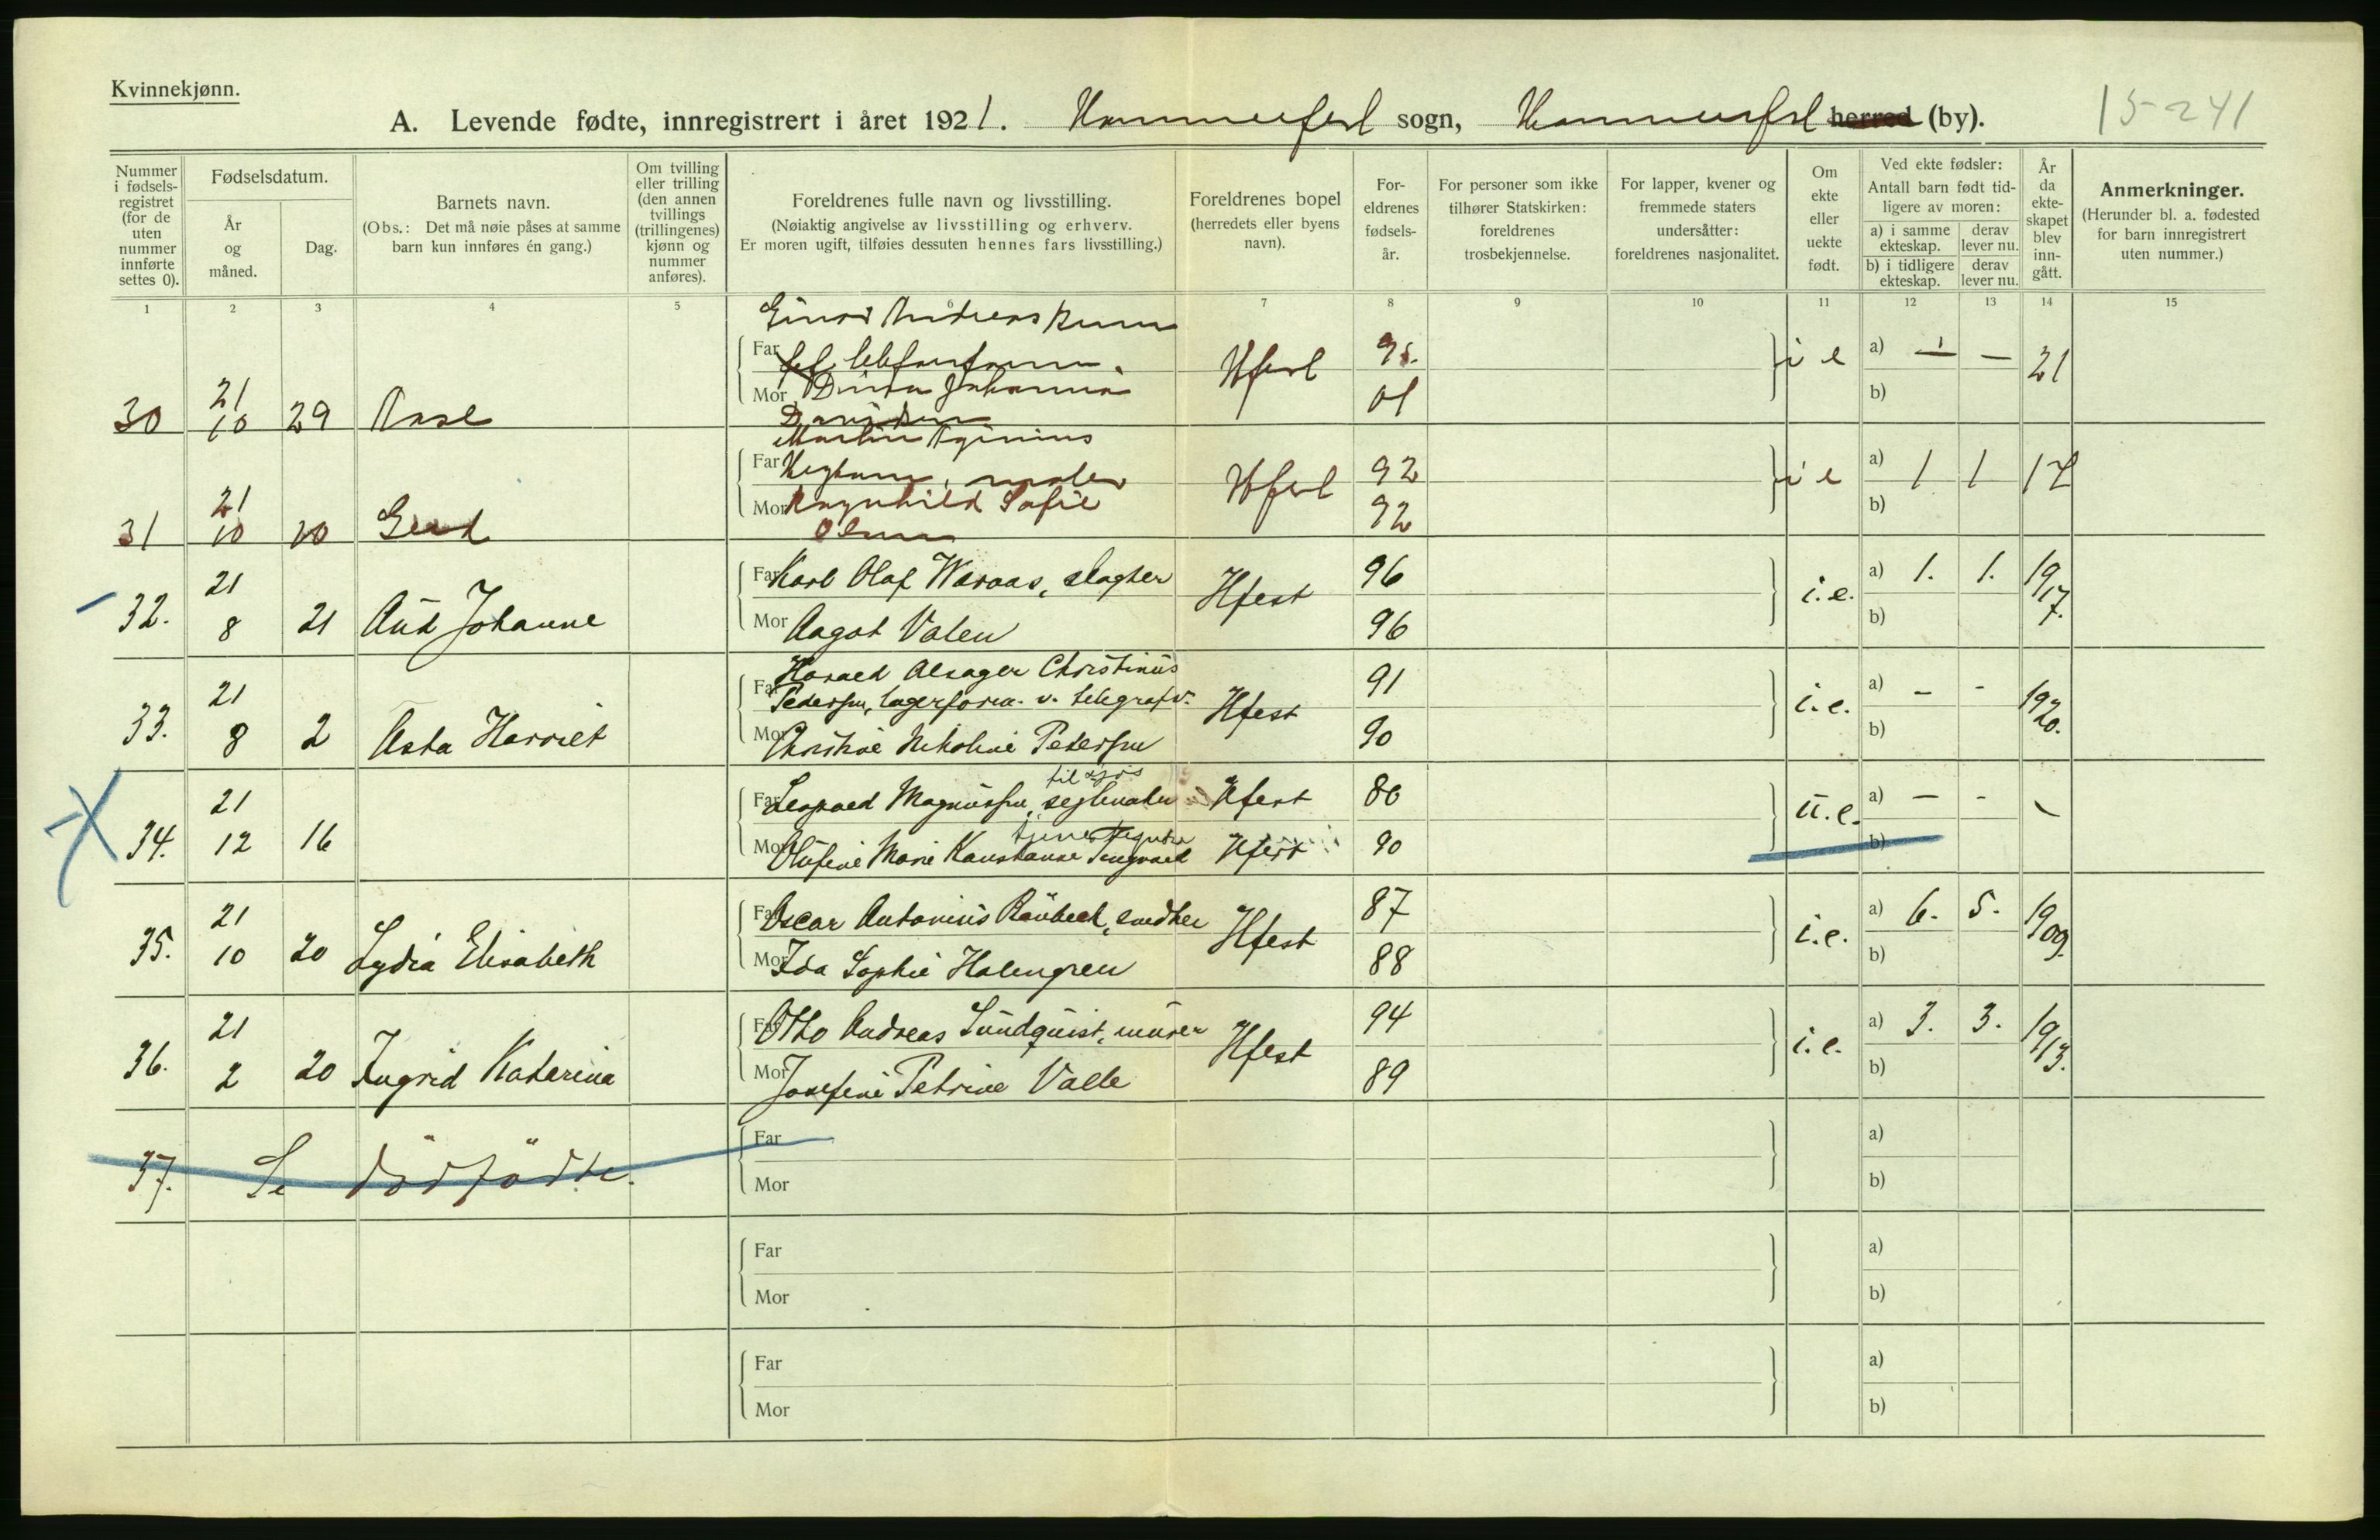 Kvinnekjønn.
A. Levende fødte, innregistrert i året 1921. Hammerfest sogn, Hammerfest herred (by). 15-241
Nummer i fødsels-registret (for de uten nummer innførte settes 0).
Fødselsdatum.
År og måned.
Dag.
Barnets navn.
(Obs.: Det må nøie påses at samme barn kun innføres én gang.)
Om tvilling eller trilling (den annen tvillings (trillingenes) kjønn og nummer anføres).
Foreldrenes fulle navn og livsstilling.
(Nøiaktig angivelse av livsstilling og erhverv.
Er moren ugift, tilføies dessuten hennes fars livsstilling.)
Foreldrenes bopel
(herredets eller byens navn).
For-eldrenes fødsels-år.
For personer som ikke tilhører Statskirken: foreldrenes trosbekjennelse.
For lapper, kvener og fremmede staters undersåtter: foreldrenes nasjonalitet.
Om ekte eller uekte født.
Ved ekte fødsler:
Antall barn født tid-ligere av moren:
a) i samme ekteskap.
derav lever nu.
b) i tidligere ekteskap.
derav lever nu.
År da ekte-skapet blev inn-gått.
Anmerkninger.
(Herunder bl. a. fødested for barn innregistrert uten nummer.)
1 2 3 4 5 6 7 8 9 10 11 12 13 14 15
Einar Andreas
30 21 10 29 Aase Far Hfest 95. i e a) - - 21
Mor Dina Johanna 01 b)
Davidsen
Martin
31 21 10 10 Gerd Far maler Hfest 92 i e a) 1 1 17
Mor Ragnhild Sofie 92 b)
Olsen
32. 21 8 21 Aud Johanne Far Karl Olaf Waraas, slagter Hfest 96 i.e. a) 1. 1. 1917.
Mor Aagot Valen 96 b)
Harald Alsager Christinius
33. 21 8 2 Asta Harriet Far Pedersen, lagerform. v. telegrafv. Hfest 91 i.e. a) - - 1920.
Mor Christine Nikoline Pedersen 90 b)
til sjøs
34. 21 12 16 Far Leopold Magnussen, seglmaker Hfest 80 u.e. a) - - -
Mor Olufine Marie Konstanse Hfest 90 b)
35. 21 10 20 Lydia Elisabeth Far Oscar Antonius Raubeck, snedker Hfest 87 i.e. a) 6. 5. 1909.
Mor Ida Sophie Holmgren 88 b)
36. 21 2 20 Ingrid Katarina Far Otto Andreas Sundquist, murer Hfest 94 i.e. a) 3. 3. 1913.
Mor Josefine Petrine Valle 89 b)
37. Se dødfødte. Far a)
Mor b)
Far a)
Mor b)
Far a)
Mor b)